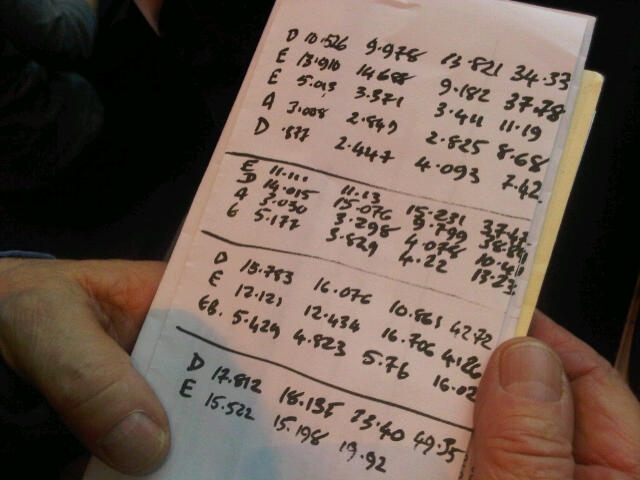 D 10.526 9.978 13.821 34.33
E 13.910 14.688 9.182 37.78
E 3.371 3.411 11.19
A 3.008 2.849 2.825 8.68
D .877 2.447 4.093 7.42
E 11.111 11.13 15.231 37.47
D 14.015 15.076 9.799 38.89
A 3.030 3.298 4.074
6 5.177 3.829 4.22 13.23
D 15.783 16.076 10.861 42.72
E 12.121 12.434 16.706 41.26
6B. 5.429 4.823 5.76 16.02
D 17.812 18.135 23.40 49.35
E 15.522 15.198 19.92